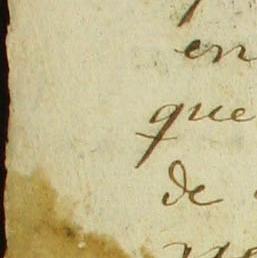 en
que
de